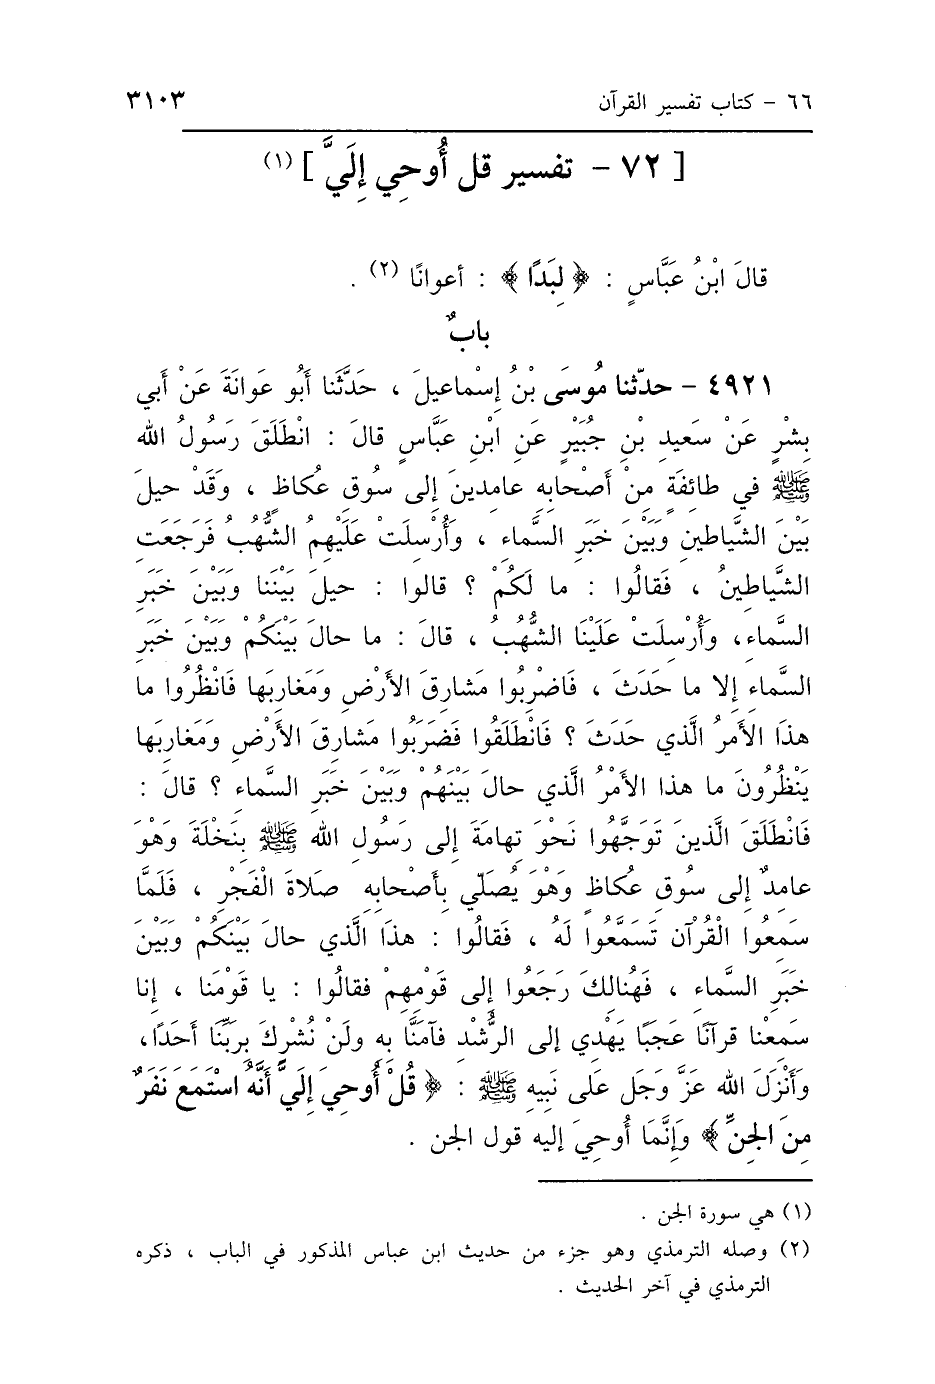 ٦٦ - كتاب تفسير القرآن ٣١٠٣
[ ٧٢ - تفسير قل أُوحِي إِلَيَّ ] (١)
قالَ ابْنُ عَبَّاسٍ : ﴿ لِبَدًا ﴾ : أعوانًا (٢) .
بابٌ
٤٩٢١ - حدّثنا مُوسَى بْنُ إِسْماعيلَ ، حَدَّثَنا أَبُو عَوانَةَ عَنْ أَبي
بِشْرٍ عَنْ سَعيدِ بْنِ جُبَيْرٍ عَنِ ابْنِ عَبَّاسٍ قالَ : انْطَلَقَ رَسُولُ الله
ﷺ في طائفَةٍ مِنْ أَصْحابِهِ عامِدينَ إلى سُوقِ عُكاظٍ ، وَقَدْ حيلَ
بَيْنَ الشَّياطينِ وَبَيْنَ خَبَرِ السَّماءِ ، وَأُرْسِلَتْ عَلَيْهِمُ الشُّهُبُ فَرَجَعَتِ
الشَّياطينُ ، فَقالُوا : ما لَكُمْ ؟ قالوا : حيلَ بَيْنَنا وَبَيْنَ خَبَرِ
السَّماءِ، وَأُرْسِلَتْ عَلَيْنَا الشُّهُبُ ، قالَ : ما حالَ بَيْنَكُمْ وَبَيْنَ خَبَرِ
السَّماءِ إلا ما حَدَثَ ، فَاضْرِبُوا مَشارِقَ الأَرْضِ وَمَغاربَها فَانْظُرُوا ما
هذَا الأَمرُ الَّذي حَدَثَ ؟ فَانْطَلَقُوا فَضَرَبُوا مَشارِقَ الأَرْضِ ومَغاربَها
يَنْظُرُونَ ما هذا الأَمْرُ الَّذي حالَ بَيْنَهُمْ وَبَيْنَ خَبَرِ السَّماءِ ؟ قالَ :
فَانْطَلَقَ الَّذينَ تَوَجَّهُوا نَحْوَ تهامَةَ إلى رَسُولِ الله ﷺ بِنَخْلَةَ وَهْوَ
عامِدٌ إلى سُوقِ عُكاظٍ وَهْوَ يُصَلّي بِأَصْحابِهِ صَلاةَ الْفَجْرِ ، فَلَمَّا
سَمِعُوا الْقُرْآن تَسَمَّعُوا لَهُ ، فَقالُوا : هذَا الَّذي حالَ بَيْنَكُمْ وَبَيْنَ
خَبَرِ السَّماءِ ، فَهُنالِكَ رَجَعُوا إلى قَوْمِهِمْ فقالُوا : يا قَوْمَنا ، إنا
سَمِعْنا قرآنًا عَجَبًا يَهْدي إلى الرُّشْدِ فآمَنَّا بِهِ ولَنْ نُشْرِكَ بِرَبِّنَا أَحَدًا،
وَأَنْزَلَ الله عَزَّ وَجَل عَلى نَبيه ﷺ : ﴿ قُلْ أُوحيَ إلَيَّ أَنَّهُ اسْتَمَعَ نَفَرٌ
مِنَ الجِنِّ ﴾ وَإِنَّمَا أُوحِيَ إليه قول الجن .
(١) هي سورة الجن .
(٢) وصله الترمذي وهو جزء من حديث ابن عباس المذكور في الباب ، ذكره
الترمذي في آخر الحديث .